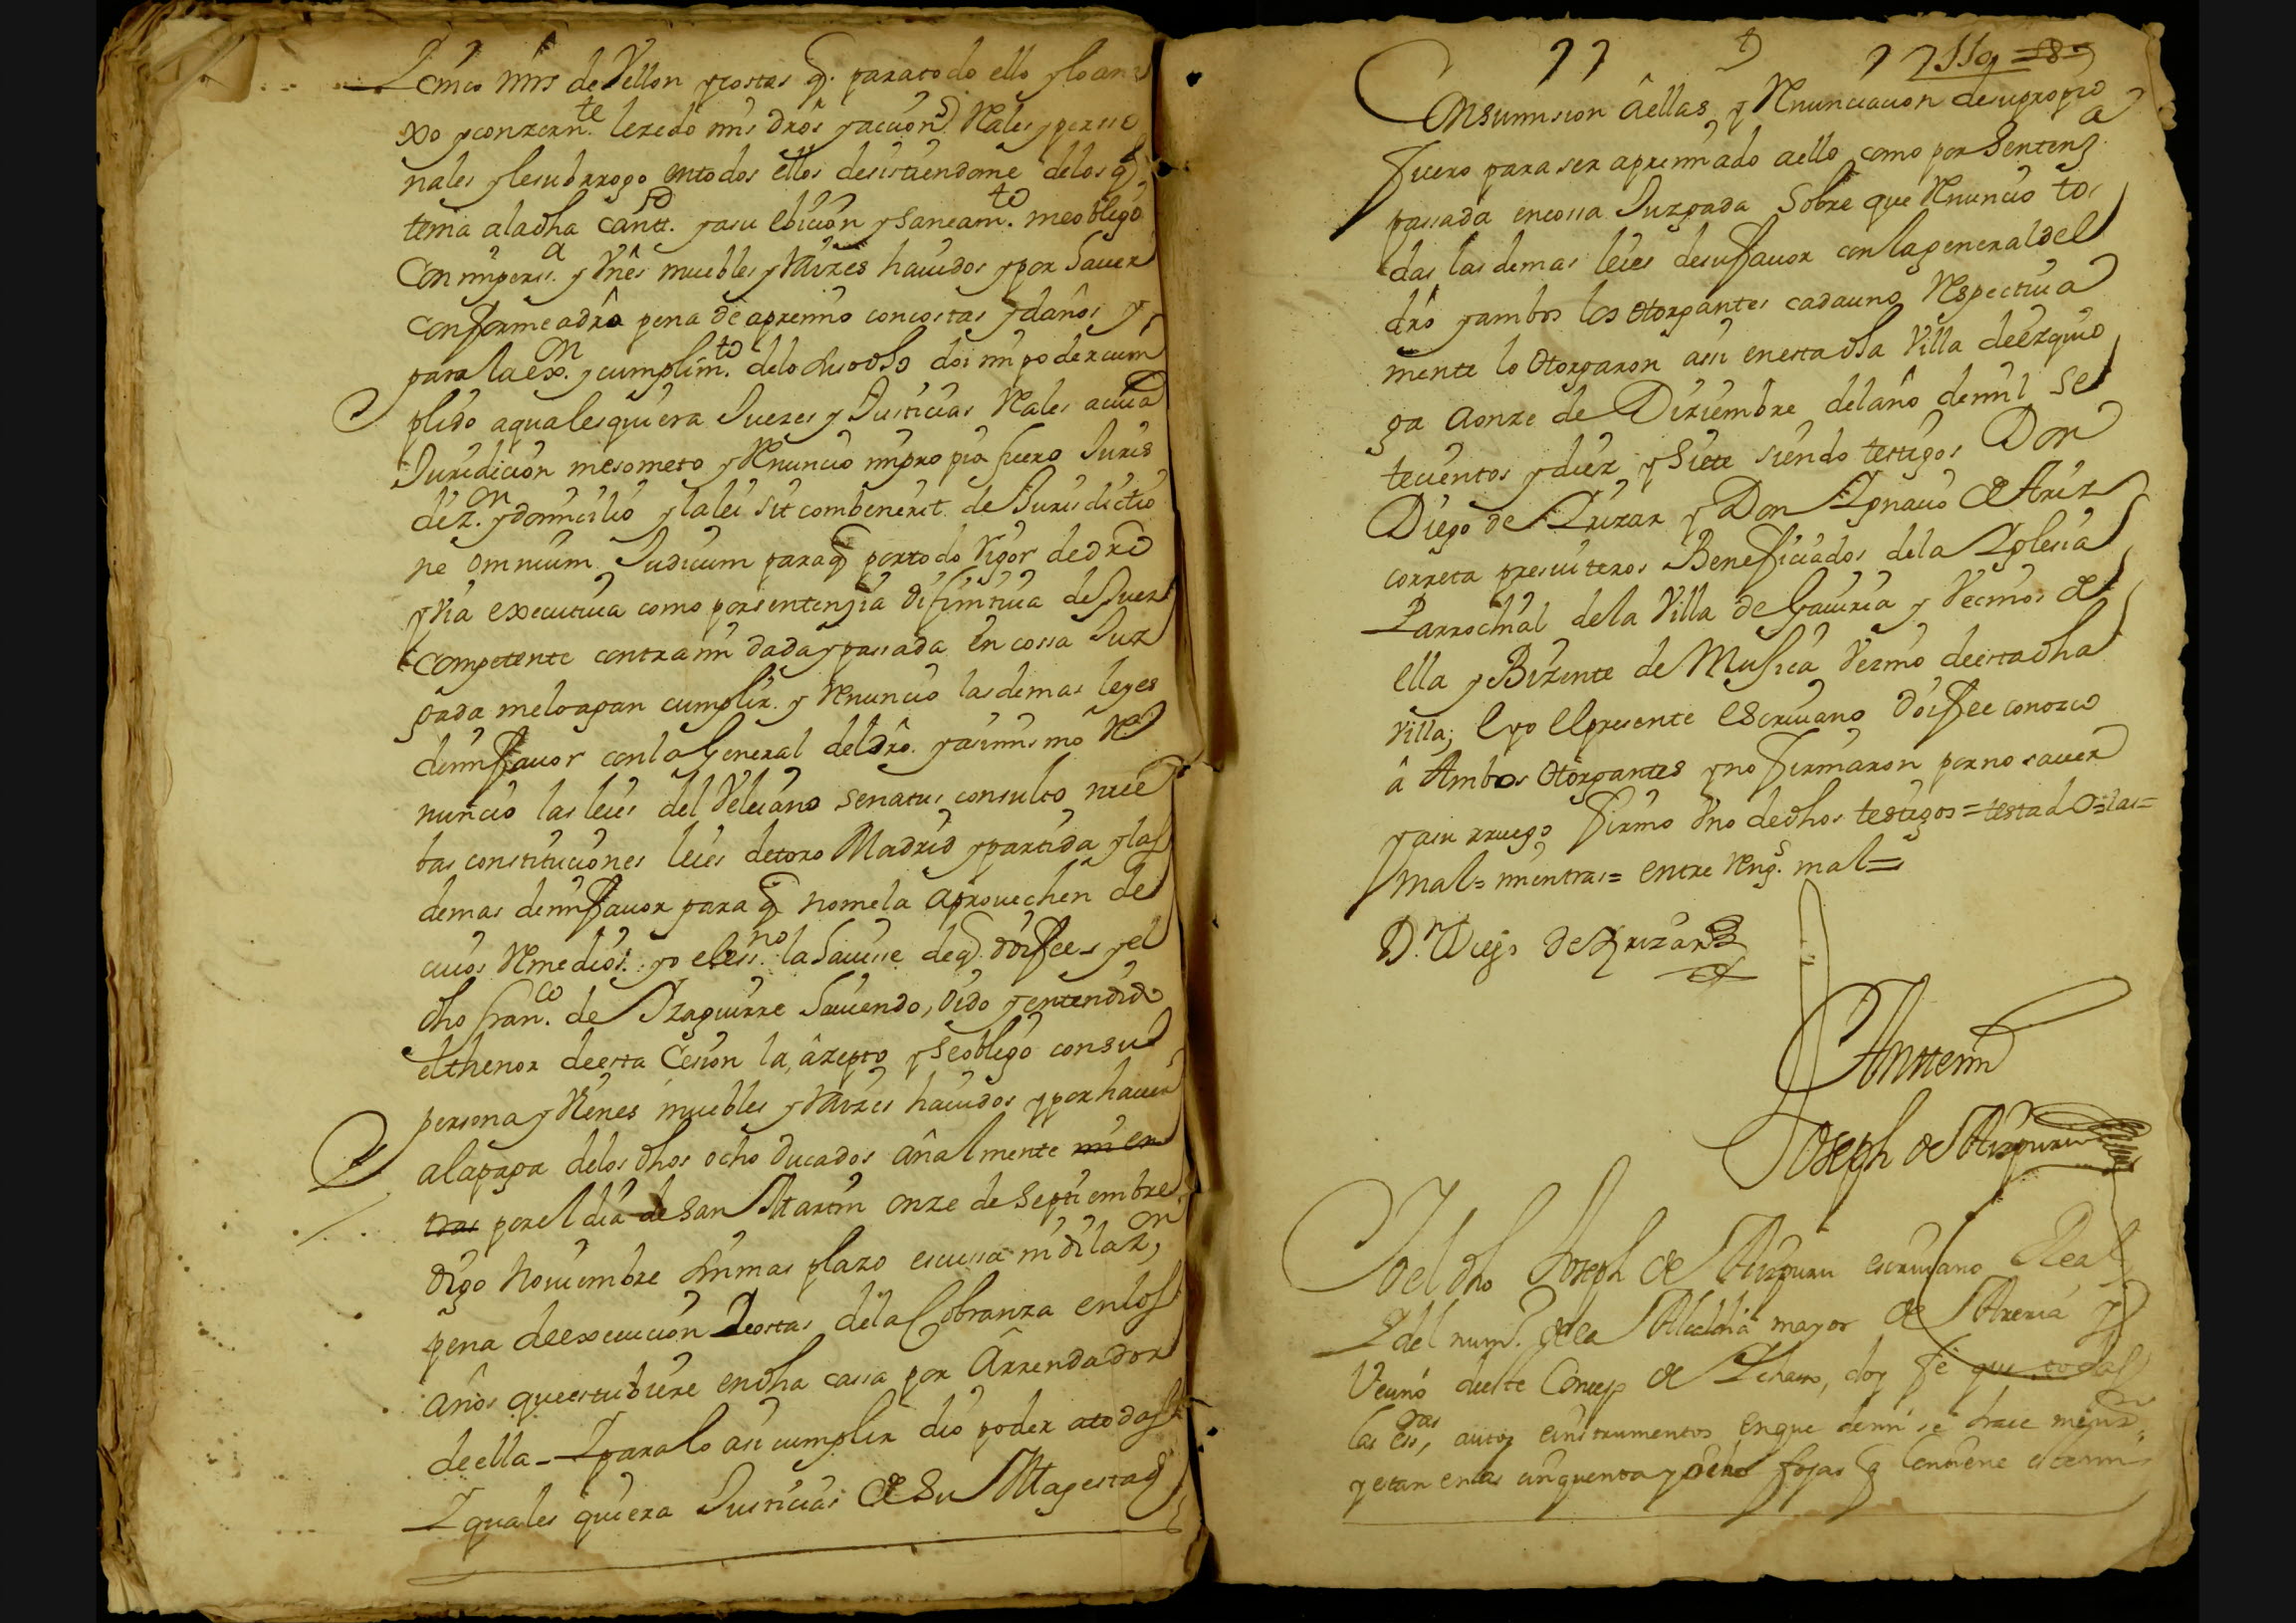 Zinco mrs de Vellon y costas q. para todo ello y lo an
xo y conzern.te le zedo mis drôs y accion.s Rales y perso
nales y le subrrogo en todos ellos desistiendome de los q.
tenia a la dha cantt.d y a su ebiccion y saneam.to me obligo
Con mi pers.a y Vnês muebles y Raizes hauidos y por hauer
conforme a drô pena de apremio con costas y daños y
para la ex.on y cumplim.to de lo susodho doi mi poder cum
plido a quales quiera Juezes y Justicias Rales a cuia
Juridicion me someto y Renuncio mi propio fuero Juris
diz.on y domicilio y la lei sit combenerit de Jurisdictio
ne omnium Judicum para q̃ por todo Vigor de drô
y Via executiua como por sentenzia difinitiua de Juez
Competente contra mi dada y passada en cossa Juz
gada me lo agan cumplir. y Renuncio las demas leyes
de mi fauor con la General del drô. y asimismo Re
nuncio las leies del Veleiano senatus consulto nue
bas constituciones leies de toro Madrid y partida y las
demas de mi fauor para q̃ no me la aprouechen de
cuios Remedios yo el ess.no la hauise de q. doi fee y el
dho fran.co de Yzaguirre hauiendo oido y entendido
el thenor de esta Cesion la azepto y se obligo con su
persona y Vienes muebles y Raizes hauidos y por hauer
a la paga de los dhos ocho ducados añalmente mien
tras por el dia de San Martin onze de Septiembre
digo Nouiembre sin mas plazo escussa ni dilaz.on
pena de execucion y costas de la Cobranza en los
años que estubiere en dha cassa por Arrendador
de ella - Y para lo asi cumplir dio poder a todas
Y quales quiera Justicias de Su Magestad
Consumision â ellas, y Renunciacion de su propio
fuero para ser apremiado a ello como por Sentenz.a
passada en cossa Juzgada Sobre que Renuncio to
das las demas leies de su fauor con la general del
drô y ambos los otorgantes cada uno Respectiua
mente lo otorgaron assi en esta dha Villa de ezquio
ga a onze de Diziembre del año de mil se
tecientos y diez y Siete siendo testigos Don
Diego de Yrizar y Don Ygnacio de Ariz
correta presuiteros Beneficiados de la Yglesia
Parrochial de la Villa de Gauiria y Vecinos de
ella y Bizente de Mujica Vezino de esta dha
Villa; e yo el presente escriuano doi fee conozco
â Ambos Otorgantes y no firmaron por no sauer
y a su rruego firmo Vno de dhos testigos = testado = las =
mal = mientras = entre Reng.s mal =
D.n Diego de Yrizar
Ante mi
Joseph de Aizpuru
Yo el dho Joseph de Aizpuru escriuano Real
Y del num.o de la Alcaldia mayor de Areria y
Vecino de este Concejo de Ychaso, doy fe que todas
las ess.ras, autos e instrumentos en que de mi se hace menz.on
y estan en las cinquenta y ocho fojas q contiene